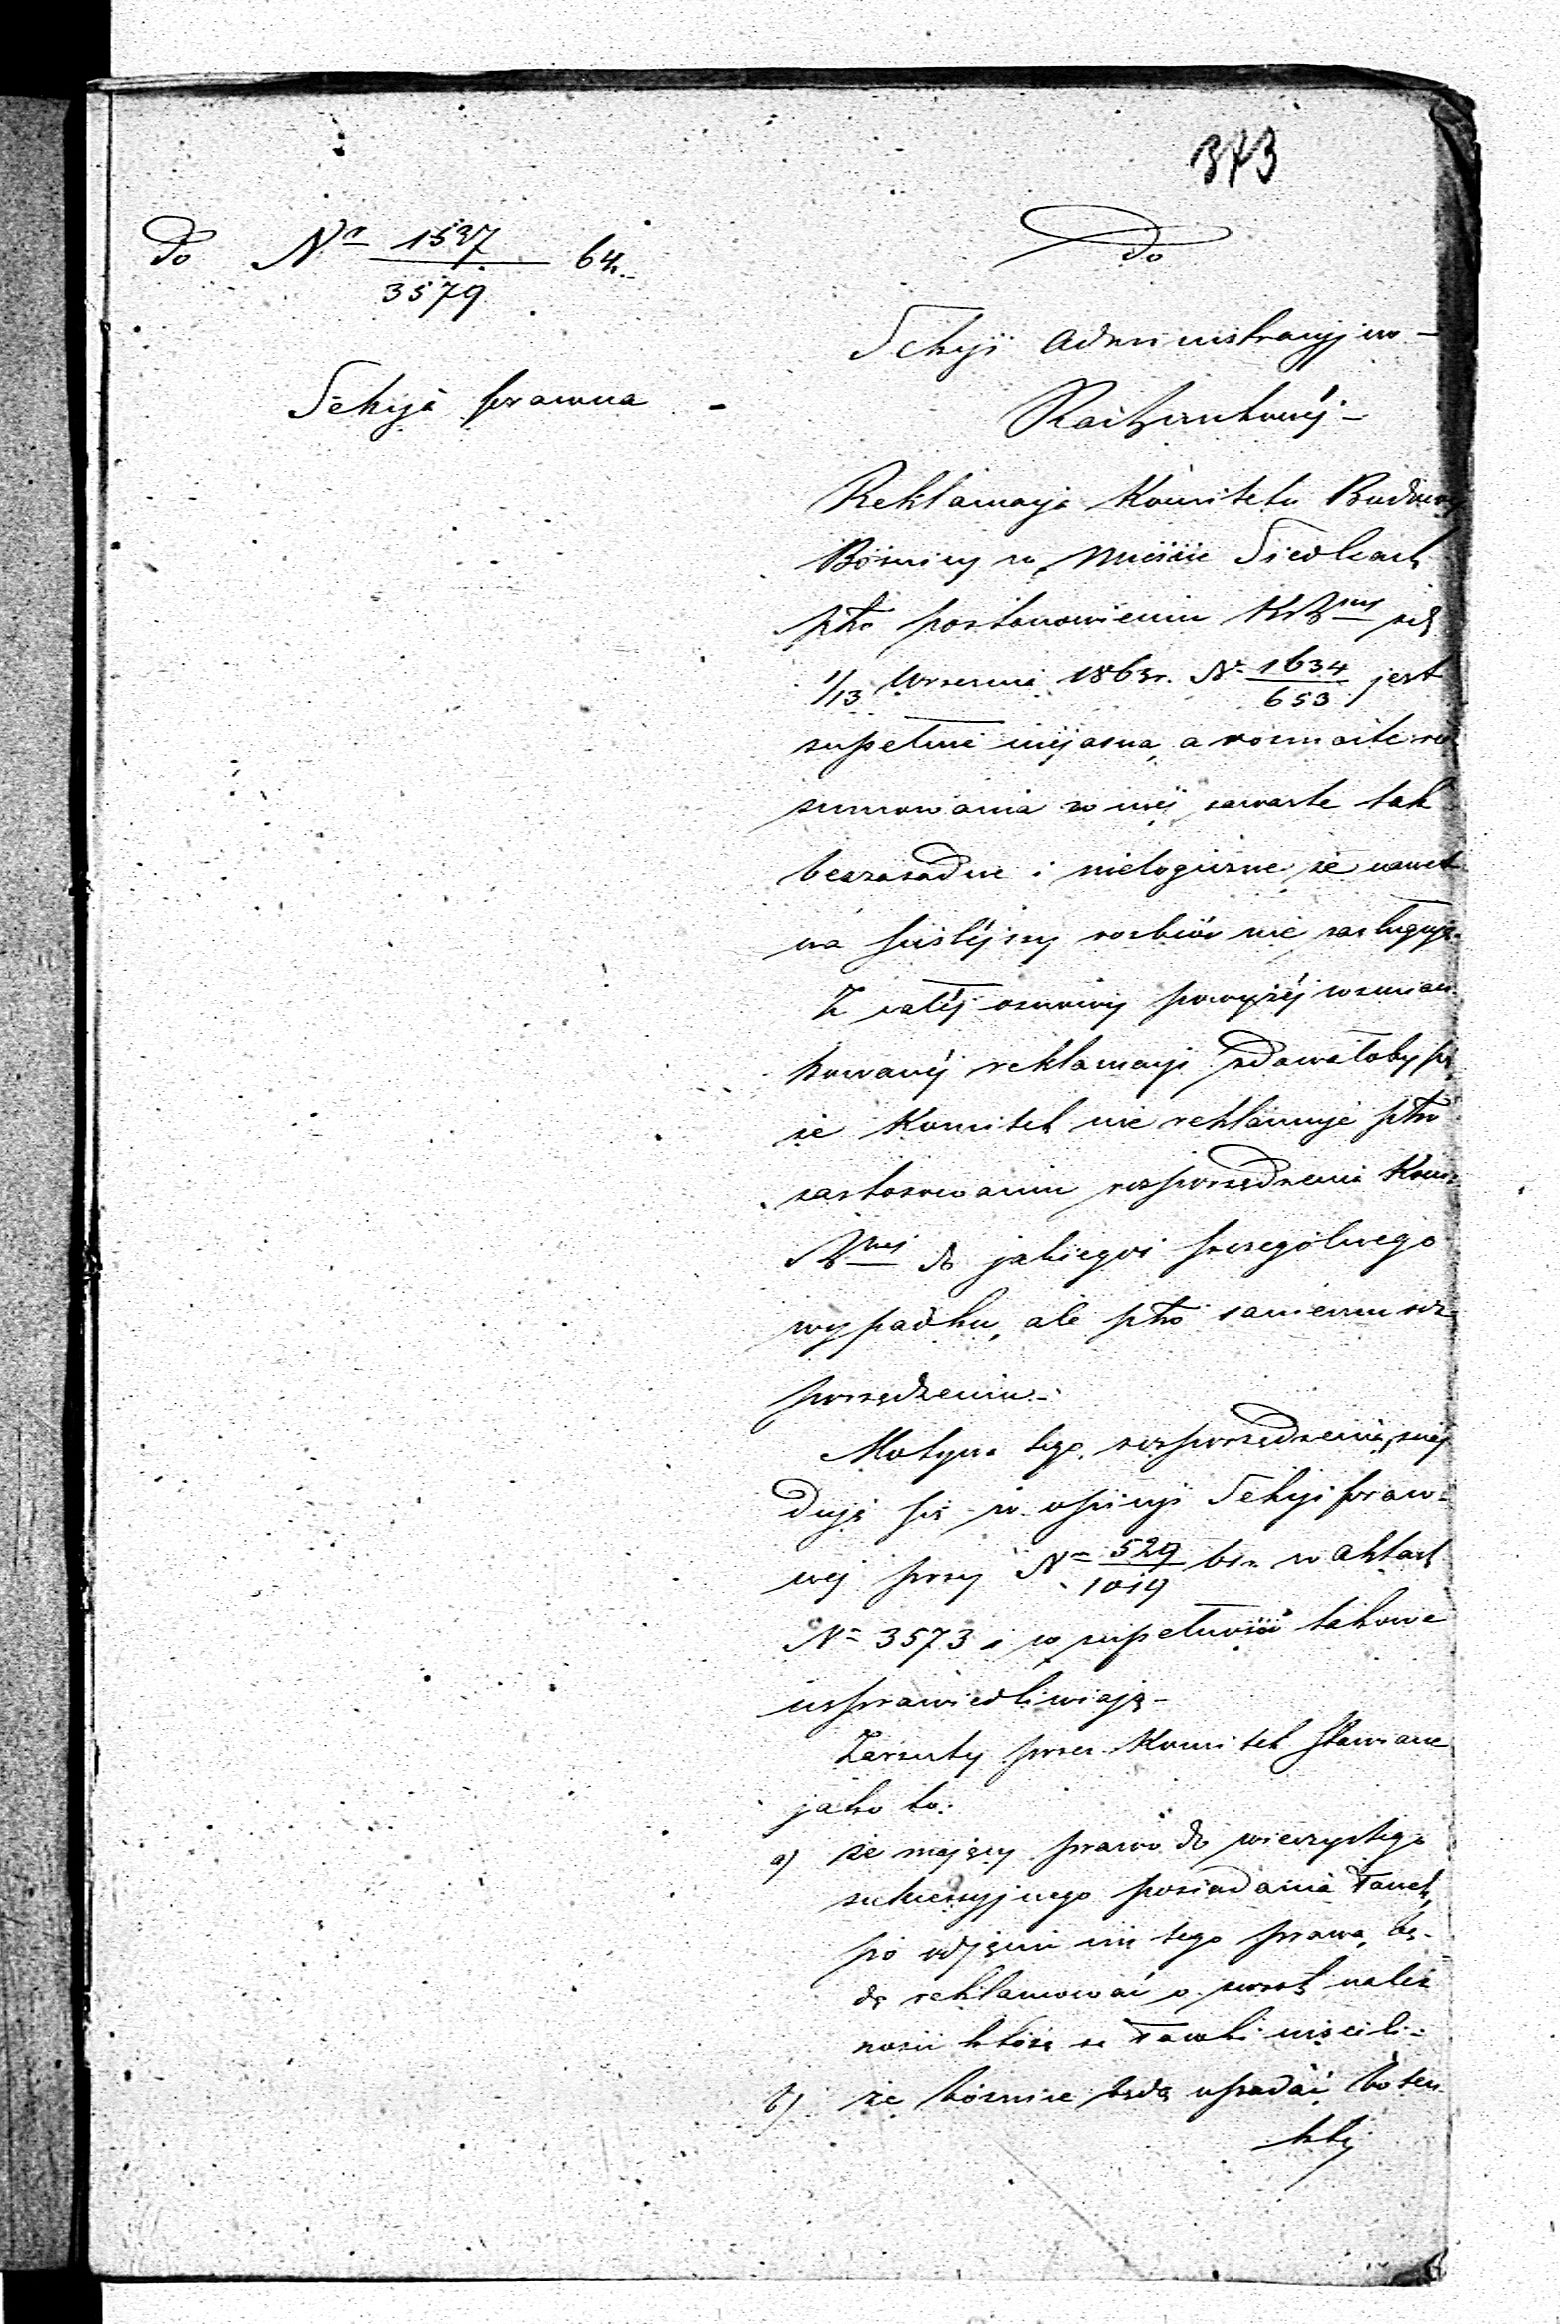 373
do Nr 1537/3579 64.
Sekcyja prawna
Do
Sekcyi Administracyjno-
Rachunkowéj -
Reklamacyja Komitetu Budowy
Bóźnicy w Mieście Siedlcach
pko postanowieniu KR z
1/13 Września 1863r. Nr 1634/653 jest
zupełnie niejasna, a rozmaite ro
zumowania w niéj zawarte tak
bezzasadne i nielogiczne, że nawet
na ściślejszy rozbiór nie zasługują.
Z całéj osnowy powyżéj wzmian-
kowanéj reklamacyi zdawałoby się
że Komitet nie reklamuje pko
zastosowaniu rozporządzenia Kom:
do jakiegoś szczególnego
wypadku, ale pko samemu roz-
porządzeniu -
Motywa tego rozporządzenia, znaj
dują się w opinji Sekcyi praw-
nej przy Nr 529/1019 w aktach
Nr 3573 i w zupełności takowe
usprawiedliwiają -
Zarzuty przez Komitet stawiane
jako to:
a) że mający prawo do wieczystego
sukcessyjnego posiadania ławek,
po odjęciu im tego prawa, bę-
dą reklamować o zwrot należ
ności którą za ławki uiścili -
b) że bóżnice będą upadać bo ten
któ